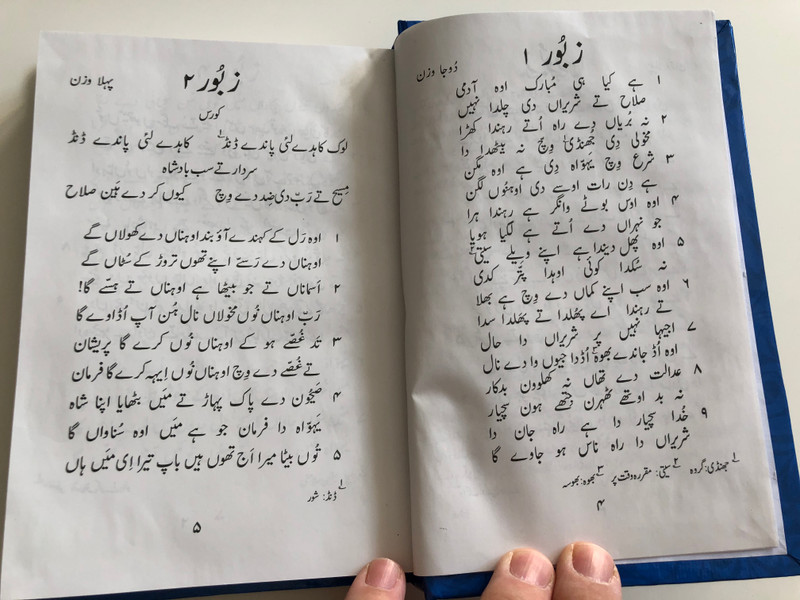 زبُور ۱
دُوجا وزن
۱ ہے کیا ہی مُبارک اوہ آدمی
صلاح تے شریراں دی چلدا نہیں
۲ نہ بُریاں دے راہ اُتے رہندا کھڑا
مخولی دِی جُھنڈی۱ وِچ نہ بیٹھدا دا
۳ شرع وِچ یہوّاہ دِی ہے اوہ مگن
ہے دِن رات اوسے دی اوہنُوں لگن
۴ اوہ اوس بوٹے وانگر ہے رہندا ہرا
جو نہراں دے اُتے ہے لگیا ہویا
۵ اوہ پھل دیندا ہے اپنے ویلے سیتی۲
نہ سُکدا کوئی اوہدا پتّر کدی
۶ اوہ سب اپنے کماں دے وِچ ہے بھلا
تے رہندا اے پھُلدا تے پھَلدا سدا
۷ اجیہا نہیں پر شریراں دا حال
اوہ اُڈ جاندے بھوہ۳ اُڈدا جیوں وا دے نال
۸ عدالت دے تھاں نہ کھلوون بدکار
نہ بد اوتھے ٹھہرن جتھے ہون سچیار
۹ خُدا سچیار دا ہے راہ جان دا
شریراں دا راہ ناس ہو جاوے گا
۱ جھنڈی: گروہ ۲ سیتی: مقررہ وقت پر ۳ بھوہ: بھوسہ
۴
زبُور ۲
پہلا وزن
کورس
لوک کاہدے لئی پاندے ڈنڈ۱ کاہدے لئی پاندے ڈنڈ
سردار تے سب بادشاہ
مسیح تے رَبّ دی ضِد دے وِچ کیوں کر دے ہَین صلاح
۱ اوہ رَل کے کہندے آؤ بند اوہناں دے کھولاں گے
اوہناں دے رَستے اپنے تھوں تروڑ کے سُٹاں گے
۲ اَسماناں تے جو بیٹھا ہے اوہناں تے ہسّے گا!
رَبّ اوہناں نُوں مخولاں نال ہُن آپ اُڈاوے گا
۳ تَد غُصّے ہو کے اوہناں نُوں کرے گا پریشان
تے غُصّے دے وِچ اوہناں نُوں اِیہہ کرے گا فرمان
۴ صَیحُون دے پاک پہاڑ تے مَیں بٹھایا اپنا شاہ
یَہوّاہ دا فرمان جو ہے مَیں اوہ سُناواں گا
۵ تُوں بیٹا میرا اَج تھوں ہیں باپ تیرا اِی مَیں ہاں
۱ ڈنڈ: شور
۵